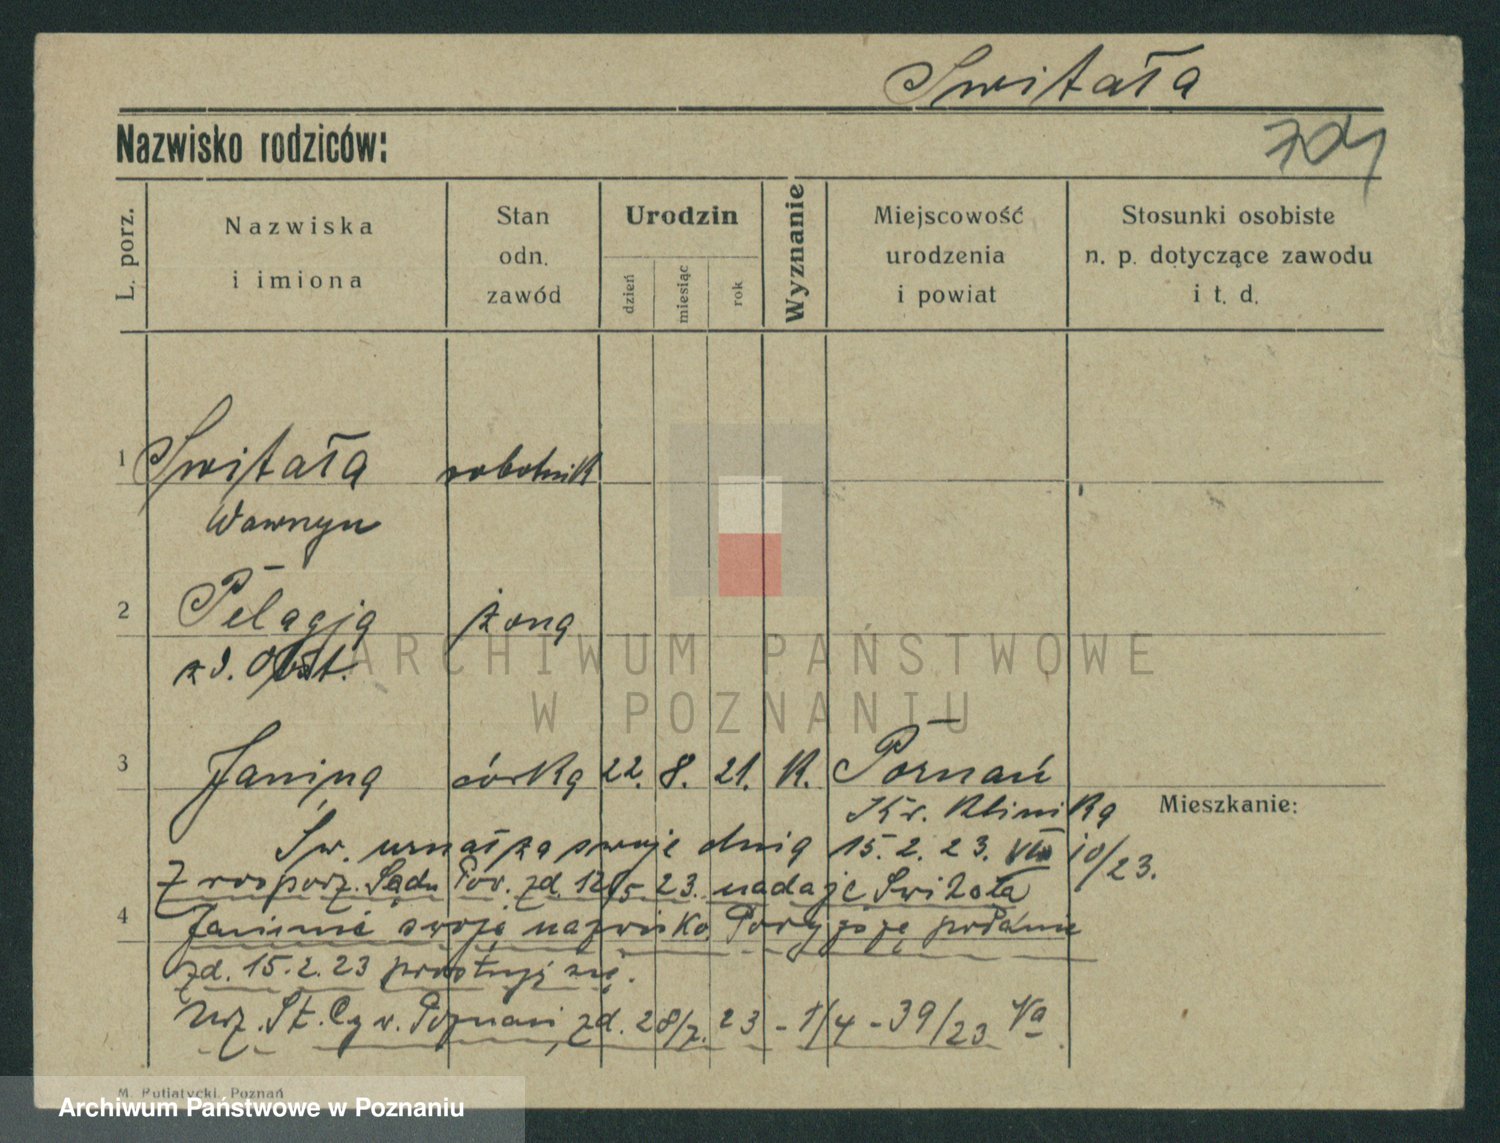 Switała
Nazwisko rodziców:
L. porz.
Nazwiska
i imiona
Stan
odn.
zawód
Urodzin
dzień
miesiąc
rok
Wyznanie
Miejscowość
urodzenia
i powiat
Stosunki osobiste
n. p. dotyczące zawodu
i t. d.
1 Switała robotnik
Wawrzyn
2 Pelagja żona
z d.
3 Janina córka 22. 8. 21. K. Poznań
Kr. Klinika
Mieszkanie:
Św. uznał za swoje dnia 15.2.23. 10/23.
Z rozporz. Sądu Pow. zd. 12/5 23. nadaje Switała
4 Janinie swoje nazwisko
zd. 15.2.23 prostuje się.
Urz. St. Cyw. Poznań, zd. 28/7. 23 - 1/4 - 39/23 Va
M. Putiatycki, Poznań
ARCHIWUM PAŃSTWOWE
W POZNANIU
Archiwum Państwowe w Poznaniu